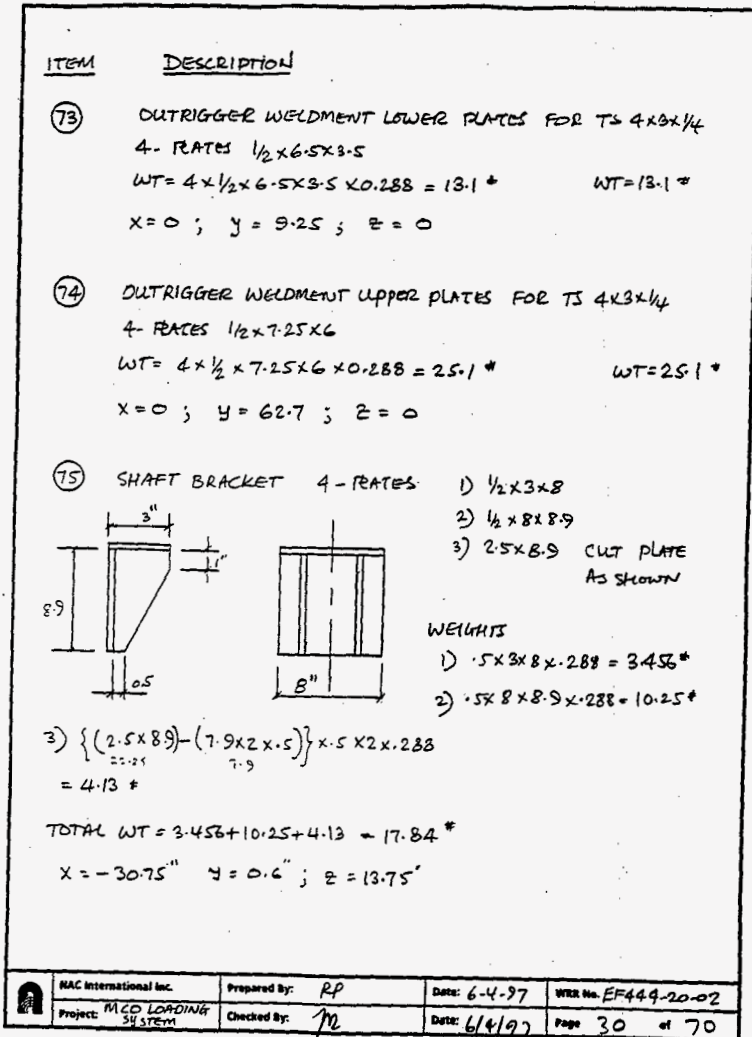 ITEM DESCRIPTION
73 OUTRIGGER WELDMENT LOWER PLATES FOR TS 4x3x1/4
4- PLATES 1/2 x 6.5x3.5
WT= 4x1/2x6.5x3.5 x0.288 = 13.1 # WT=13.1 #
x=0 ; y = 9.25 ; z = 0
74 OUTRIGGER WELDMENT UPPER PLATES FOR TS 4x3x1/4
4- PLATES 1/2 x 7.25x6
WT= 4 x 1/2 x 7.25x6 x0.288 = 25.1 # WT=25.1 #
x=0 ; y = 62.7 ; z = 0
75 SHAFT BRACKET 4-PLATES 1) 1/2x3x8
2) 1/2 x 8x 8.9
3) 2.5x8.9 CUT PLATE
AS SHOWN
3"
1"
8.9
0.5
8"
WEIGHTS
1) .5x3x8x.288 = 3.456#
2) .5x8x8.9x.288 = 10.25#
3) {(2.5x8.9)-(7.9x2x.5)}x.5x2x.288
22.25 7.9
= 4.13 #
TOTAL WT = 3.456+10.25+4.13 = 17.84 #
x = -30.75" y = 0.6" ; z = 13.75"
NAC International Inc. Prepared By: RP Date: 6-4-97 WRR No. EF444-20-02
Project: MCO LOADING SYSTEM Checked By: Date: 6/4/97 Page 30 of 70